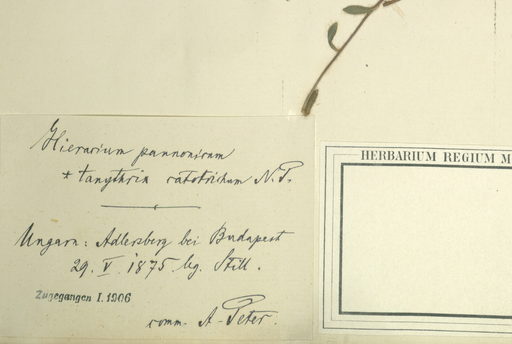 Hieracium pannonicum
* tanythrix catotrichum N. P.
Ungarn: Adlersberg bei Budapest
29. V. 1875. lg. Still.
Zugegangen I. 1906
comm. A. Peter.
HERBARIUM REGIUM M